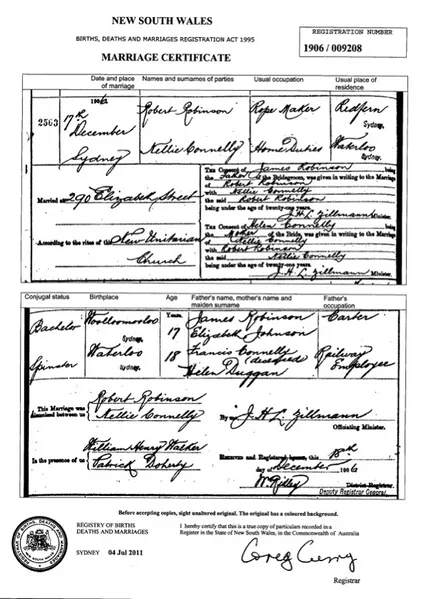 NEW SOUTH WALES
BIRTHS, DEATHS AND MARRIAGES REGISTRATION ACT 1995
MARRIAGE CERTIFICATE
REGISTRATION NUMBER
1906 / 009208
Date and place of marriage
Names and surnames of parties
Usual occupation
Usual place of residence
2563
1906
7th December
Sydney
Robert Robinson
Rope Maker
Redfern
Sydney.
Nellie Connelly
Home Duties
Waterloo
Sydney.
Married at 290 Elizabeth Street
According to the rites of the New Unitarian Church
The Consent of James Robinson being
the Father of the Bridegroom, was given in writing to the Marriage
of Robert Robinson
with Nellie Connelly
the said Robert Robinson
being under the age of twenty-one years.
J. H. L. Zillmann Minister
The Consent of Helen Connelly being
the Mother of the Bride, was given in writing to the Marriage
of Nellie Connelly
with Robert Robinson
the said Nellie Connelly
being under the age of twenty-one years.
J. H. L. Zillmann Minister
Conjugal status
Birthplace
Age
Father's name, mother's name and maiden surname
Father's occupation
Years.
Bachelor
Woolloomooloo
Sydney.
17
James Robinson
Elizabeth Johnson
Carter
Spinster
Waterloo
Sydney.
18
Francis Connelly (deceased)
Helen Duggan
Railway Employee
This Marriage was solemnized between us
Robert Robinson
Nellie Connelly
By me J. H. L. Zillmann
Officiating Minister.
In the presence of us
William Henry Walker
Patrick Doherty
Received and Registered by me, this 18th
day of December 1906
W. Rilly
District-Registrar
Deputy Registrar General
Before accepting copies, sight unaltered original. The original has a coloured background.
REGISTRY OF BIRTHS
DEATHS AND MARRIAGES
SYDNEY 04 Jul 2011
I hereby certify that this is a true copy of particulars recorded in a
Register in the State of New South Wales, in the Commonwealth of Australia
Greg Curry
Registrar